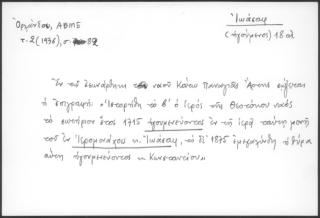 Ὀρλάνδου, ΑΒΜΕ
τ. 2 (1936), σ. 82
Ἰωάσαφ
(ἡγούμενος) 18 αἰ.
Ἐν τοῦ ναοῦ Κάτω Παναγιᾶς Ἄρτης
ἡ ἐπιγραφή: «Ἱστορήθη τὸ β΄ ὁ ἱερὸς τῆς Θεοτόκου ναὸς
τὸ σωτήριον ἔτος 1715 ἡγουμενεύοντος ἐν τῇ ἱερᾷ ταύτῃ μονῇ
τοῦ ἐν Ἱερομονάχοις κ. Ἰωάσαφ, τὸ δὲ 1875 ἐμεγαλύνθη ἡ θύρα
αὕτη ἡγουμενεύοντος κ. Κωνσταντίου»